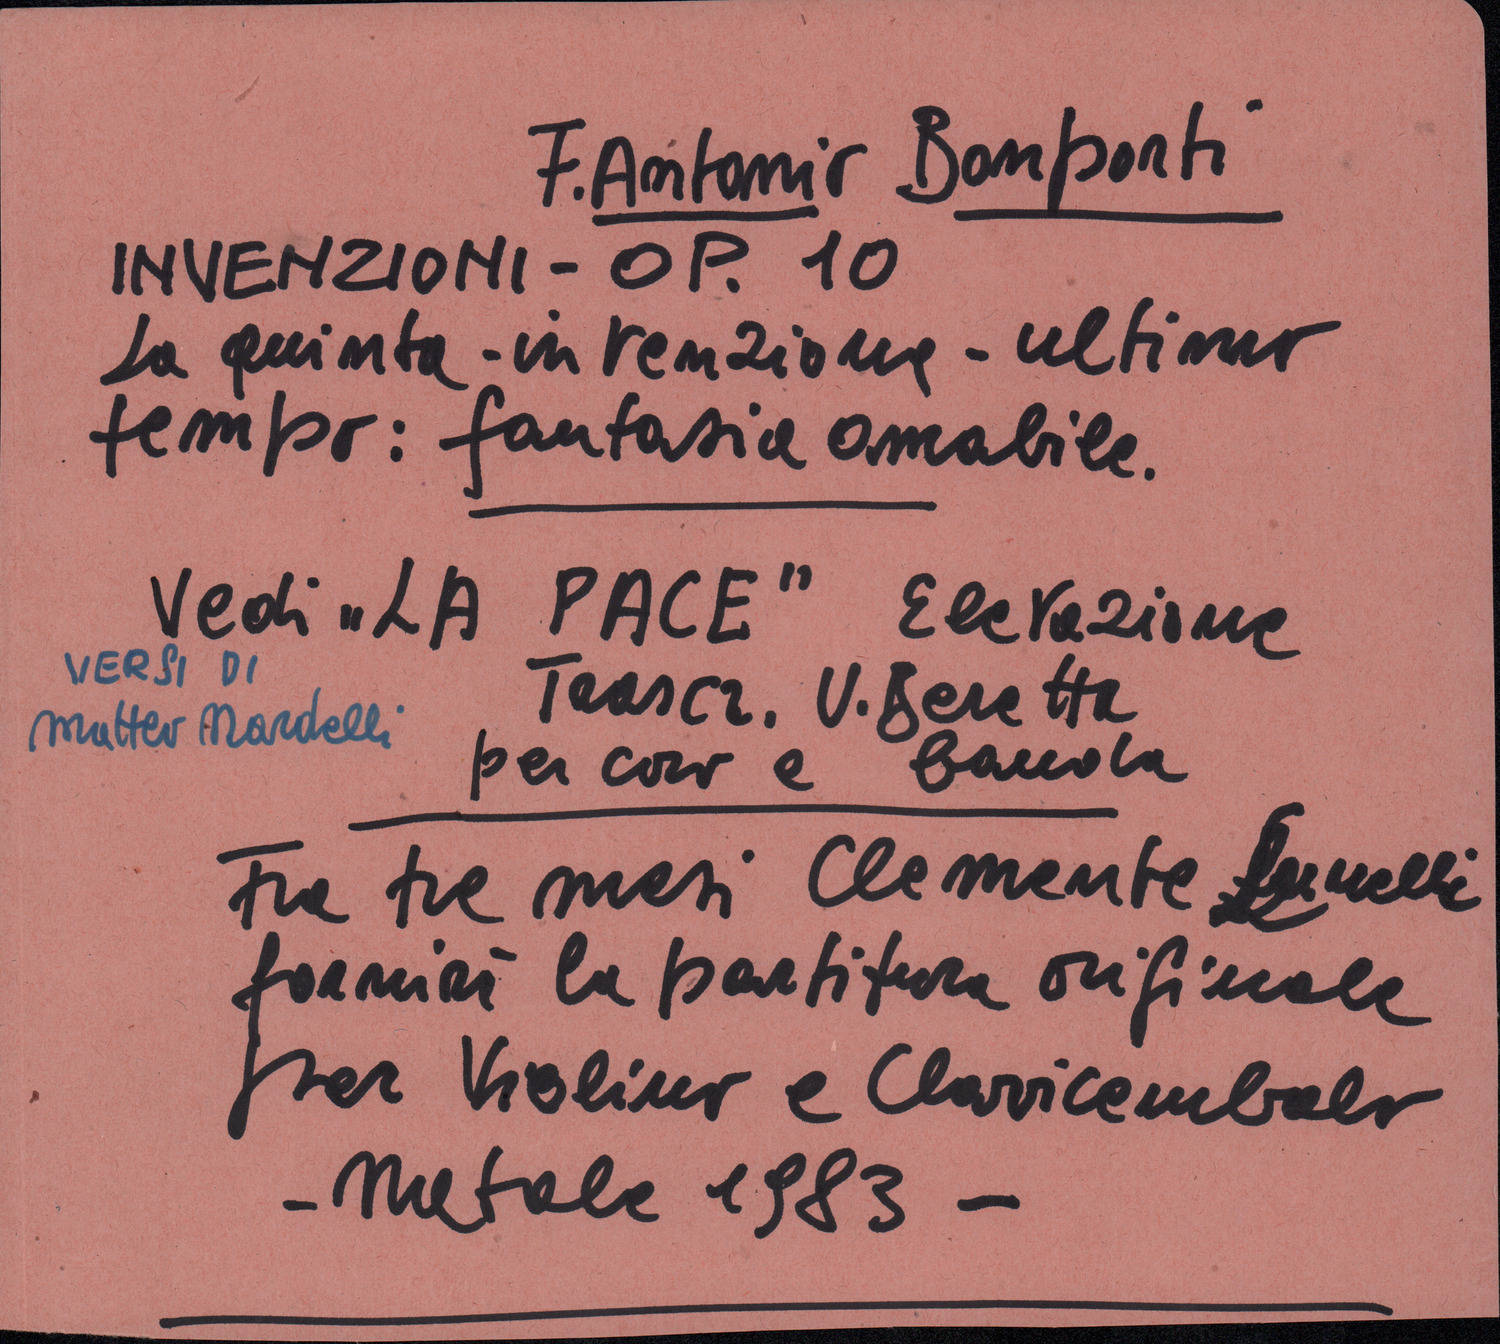 F. Antonio Bonporti
INVENZIONI - OP. 10
La quinta - invenzione - ultimo
tempo: fantasia amabile.
Vedi "LA PACE" Elevazione
VERSI DI
Matteo Nardelli
Trascr. U. Beretta
per coro e banda
Fra tre mesi Clemente
fornirà la partitura originale
per Violino e Clavicembalo
- Natale 1983 -